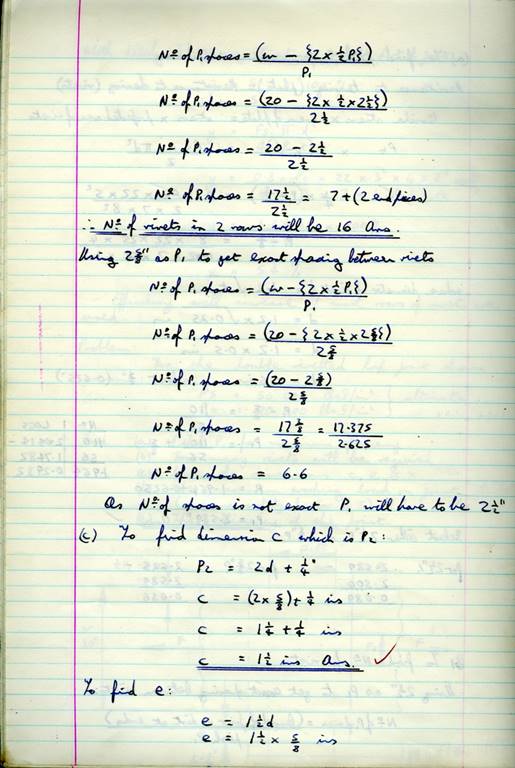 Nº of P₁ spaces = (w - {2 x ½P₁})/P₁
Nº of P₁ spaces = (20 - {2 x ½ x 2½})/2½
Nº of P₁ spaces = 20 - 2½/2½
Nº of P₁ spaces = 17½/2½ = 7 + (2 end pieces)
∴ Nº of rivets in 2 rows will be 16 Ans.
Using 2⅝" as P₁ to get exact spacing between rivets
Nº of P₁ spaces = (w - {2 x ½P₁})/P₁
Nº of P₁ spaces = (20 - {2 x ½ x 2⅝})/2⅝
Nº of P₁ spaces = (20 - 2⅝)/2⅝
Nº of P₁ spaces = 17⅜/2⅝ = 17.375/2.625
Nº of P₁ spaces = 6.6
As Nº of spaces is not exact P₁ will have to be 2½"
(c) To find dimension C which is P₂:
P₂ = 2d + ¼"
C = (2 x ⅝) + ¼ ins
C = 1¼ + ¼ ins
C = 1½ ins Ans. ✓
To find e:
e = 1½d
e = 1½ x ⅝ ins